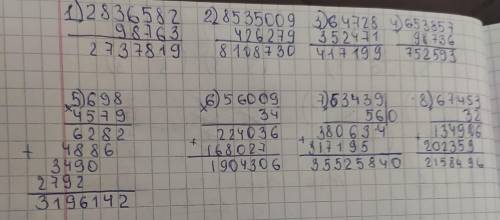 1) 2836582
98763
2737819
2) 8535009
426279
8108730
3) 64728
352471
417199
4) 653857
98736
752593
5) 698
× 4579
6282
+ 4886
3490
2792
3196142
6) 56009
× 34
224036
+ 168027
1904306
7) 63439
× 560
380634
+ 317195
35525840
8) 67453
× 32
134906
+ 202359
2158496